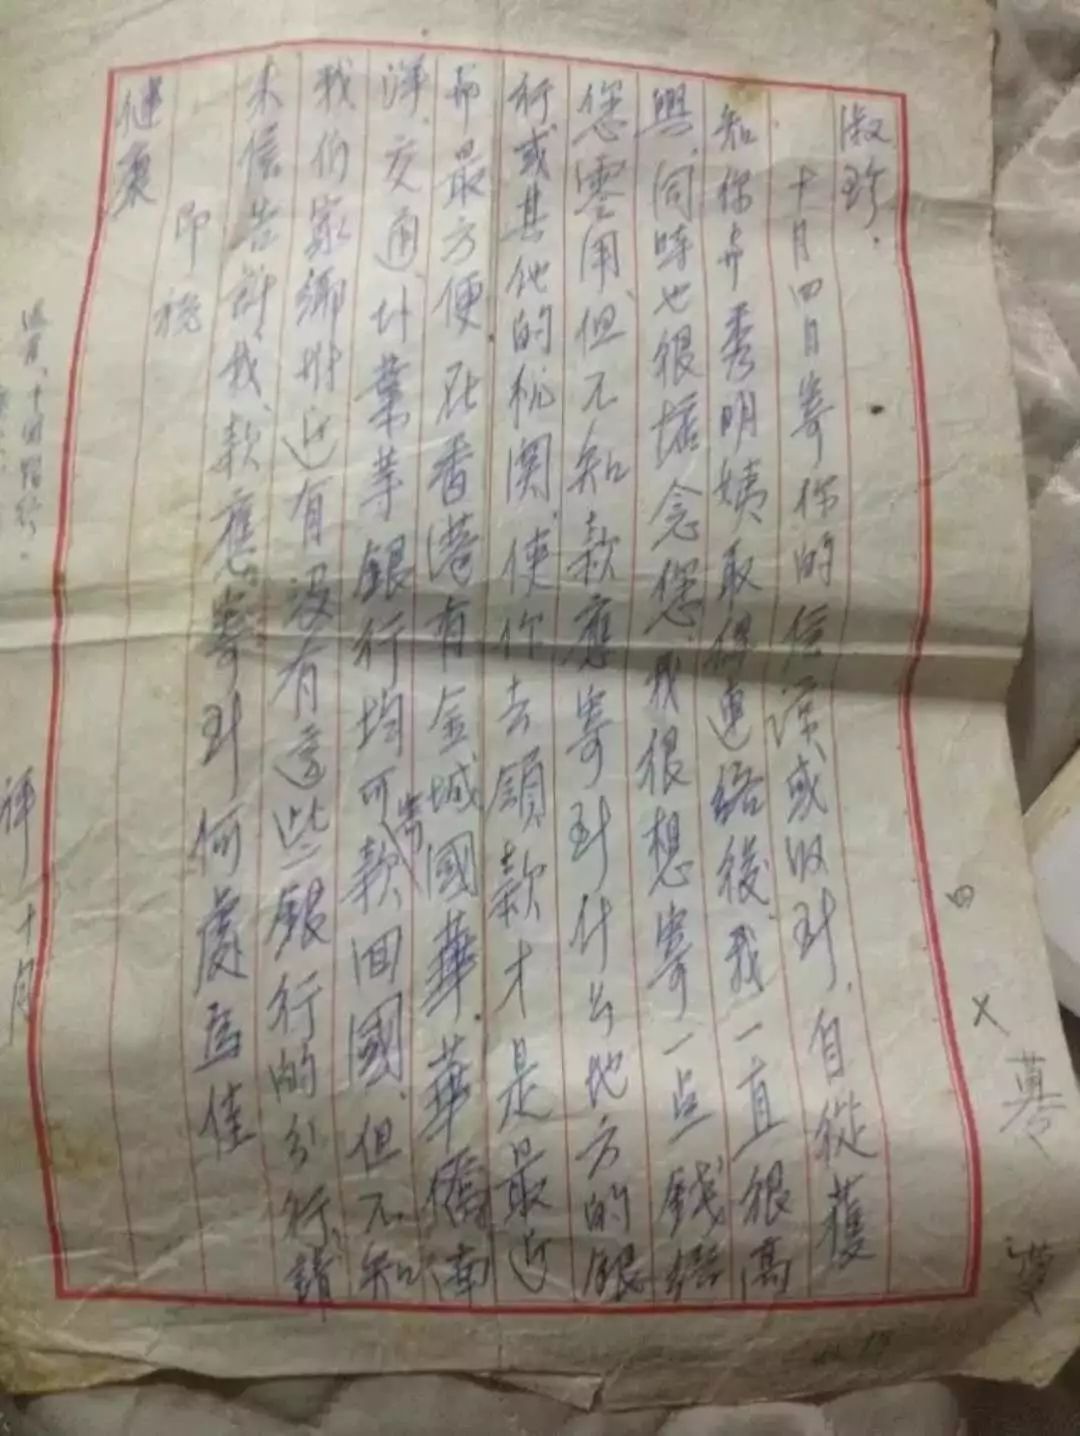 淑珍.
十月四日寄你的信諒或收到.自從獲
知你与秀明姨取得連絡後我一直很高
興,同時也很惦念您,我很想寄一点錢給
您零用,但不知款應寄到什么地方的銀
行或其他的机関,使你去領款才是最近
而最方便.在香港有金城國華.華僑南
洋.交通.    業等銀行均可寄款回國.但不知
我们家鄉附近有没有這些銀行的分行.請
来信告訴我,款應寄到何處為佳
即祝
健康
祥 十月
四